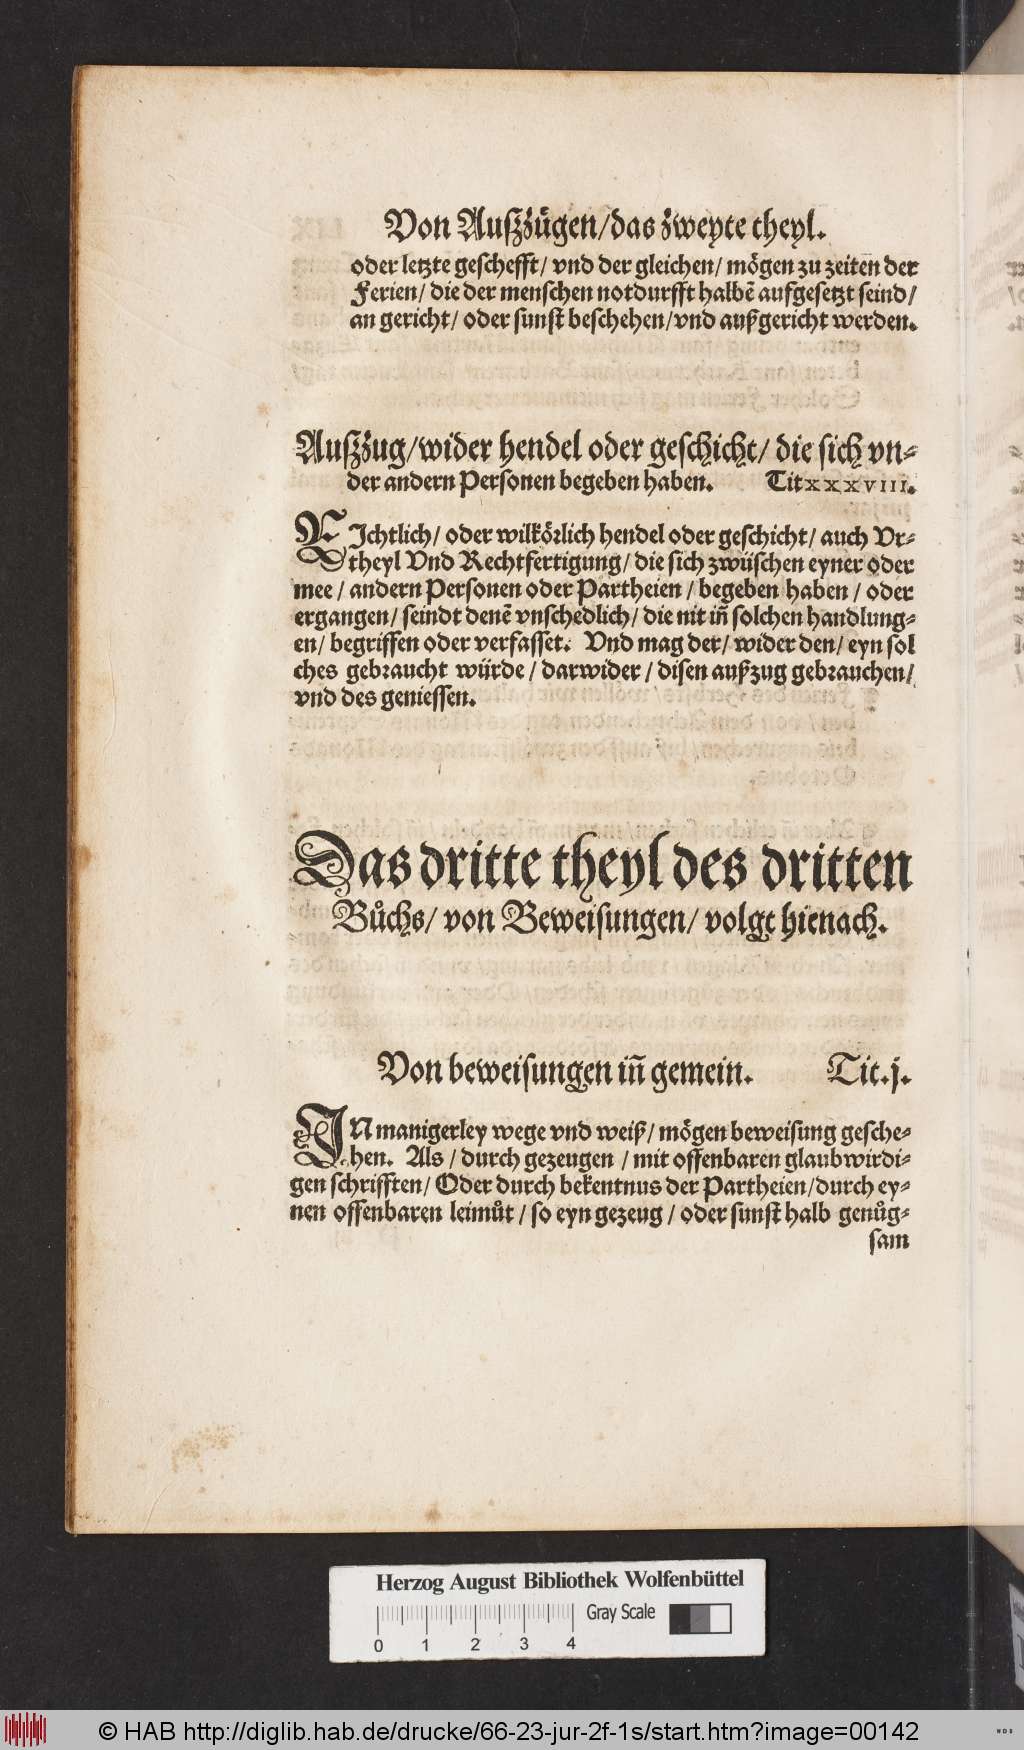 Von Außzügen/das zweyte theyl.
oder letzte geschefft/ vnd der gleichen/ mögen zu zeiten der
Ferien/ die der menschen notdurfft halbē aufgesetzt seind/
an gericht/ oder sunst beschehen/vnd außgericht werden.
Außzug/wider hendel oder geschicht/ die sich vn⸗
der andern Personen begeben haben. Tit xxxviii.
Ichtlich/ oder wilkörlich hendel oder geschicht/ auch Vr⸗
theyl Vnd Rechtfertigung/ die sich zwüschen eyner oder
mee/ andern Personen oder Partheien/ begeben haben/ oder
ergangen/ seindt denē vnschedlich/ die nit in̄ solchen handlung⸗
en/ begriffen oder verfasset. Vnd mag der/ wider den/ eyn sol
ches gebraucht würde/ darwider/ disen außzug gebrauchen/
vnd des geniessen.
Das dritte theyl des dritten
Bůchs/ von Beweisungen/ volgt hienach.
Von beweisungen in̄ gemein. Tit.j.
IN manigerley wege vnd weiß/ mögen beweisung gesche⸗
hen. Als/ durch gezeugen/ mit offenbaren glaubwirdi⸗
gen schrifften/ Oder durch bekentnus der Partheien/durch ey⸗
nen offenbaren leimůt/ so eyn gezeug/ oder sunst halb genůg⸗
sam
Herzog August Bibliothek Wolfenbüttel
Gray Scale
0 1 2 3 4
© HAB http://diglib.hab.de/drucke/66-23-jur-2f-1s/start.htm?image=00142